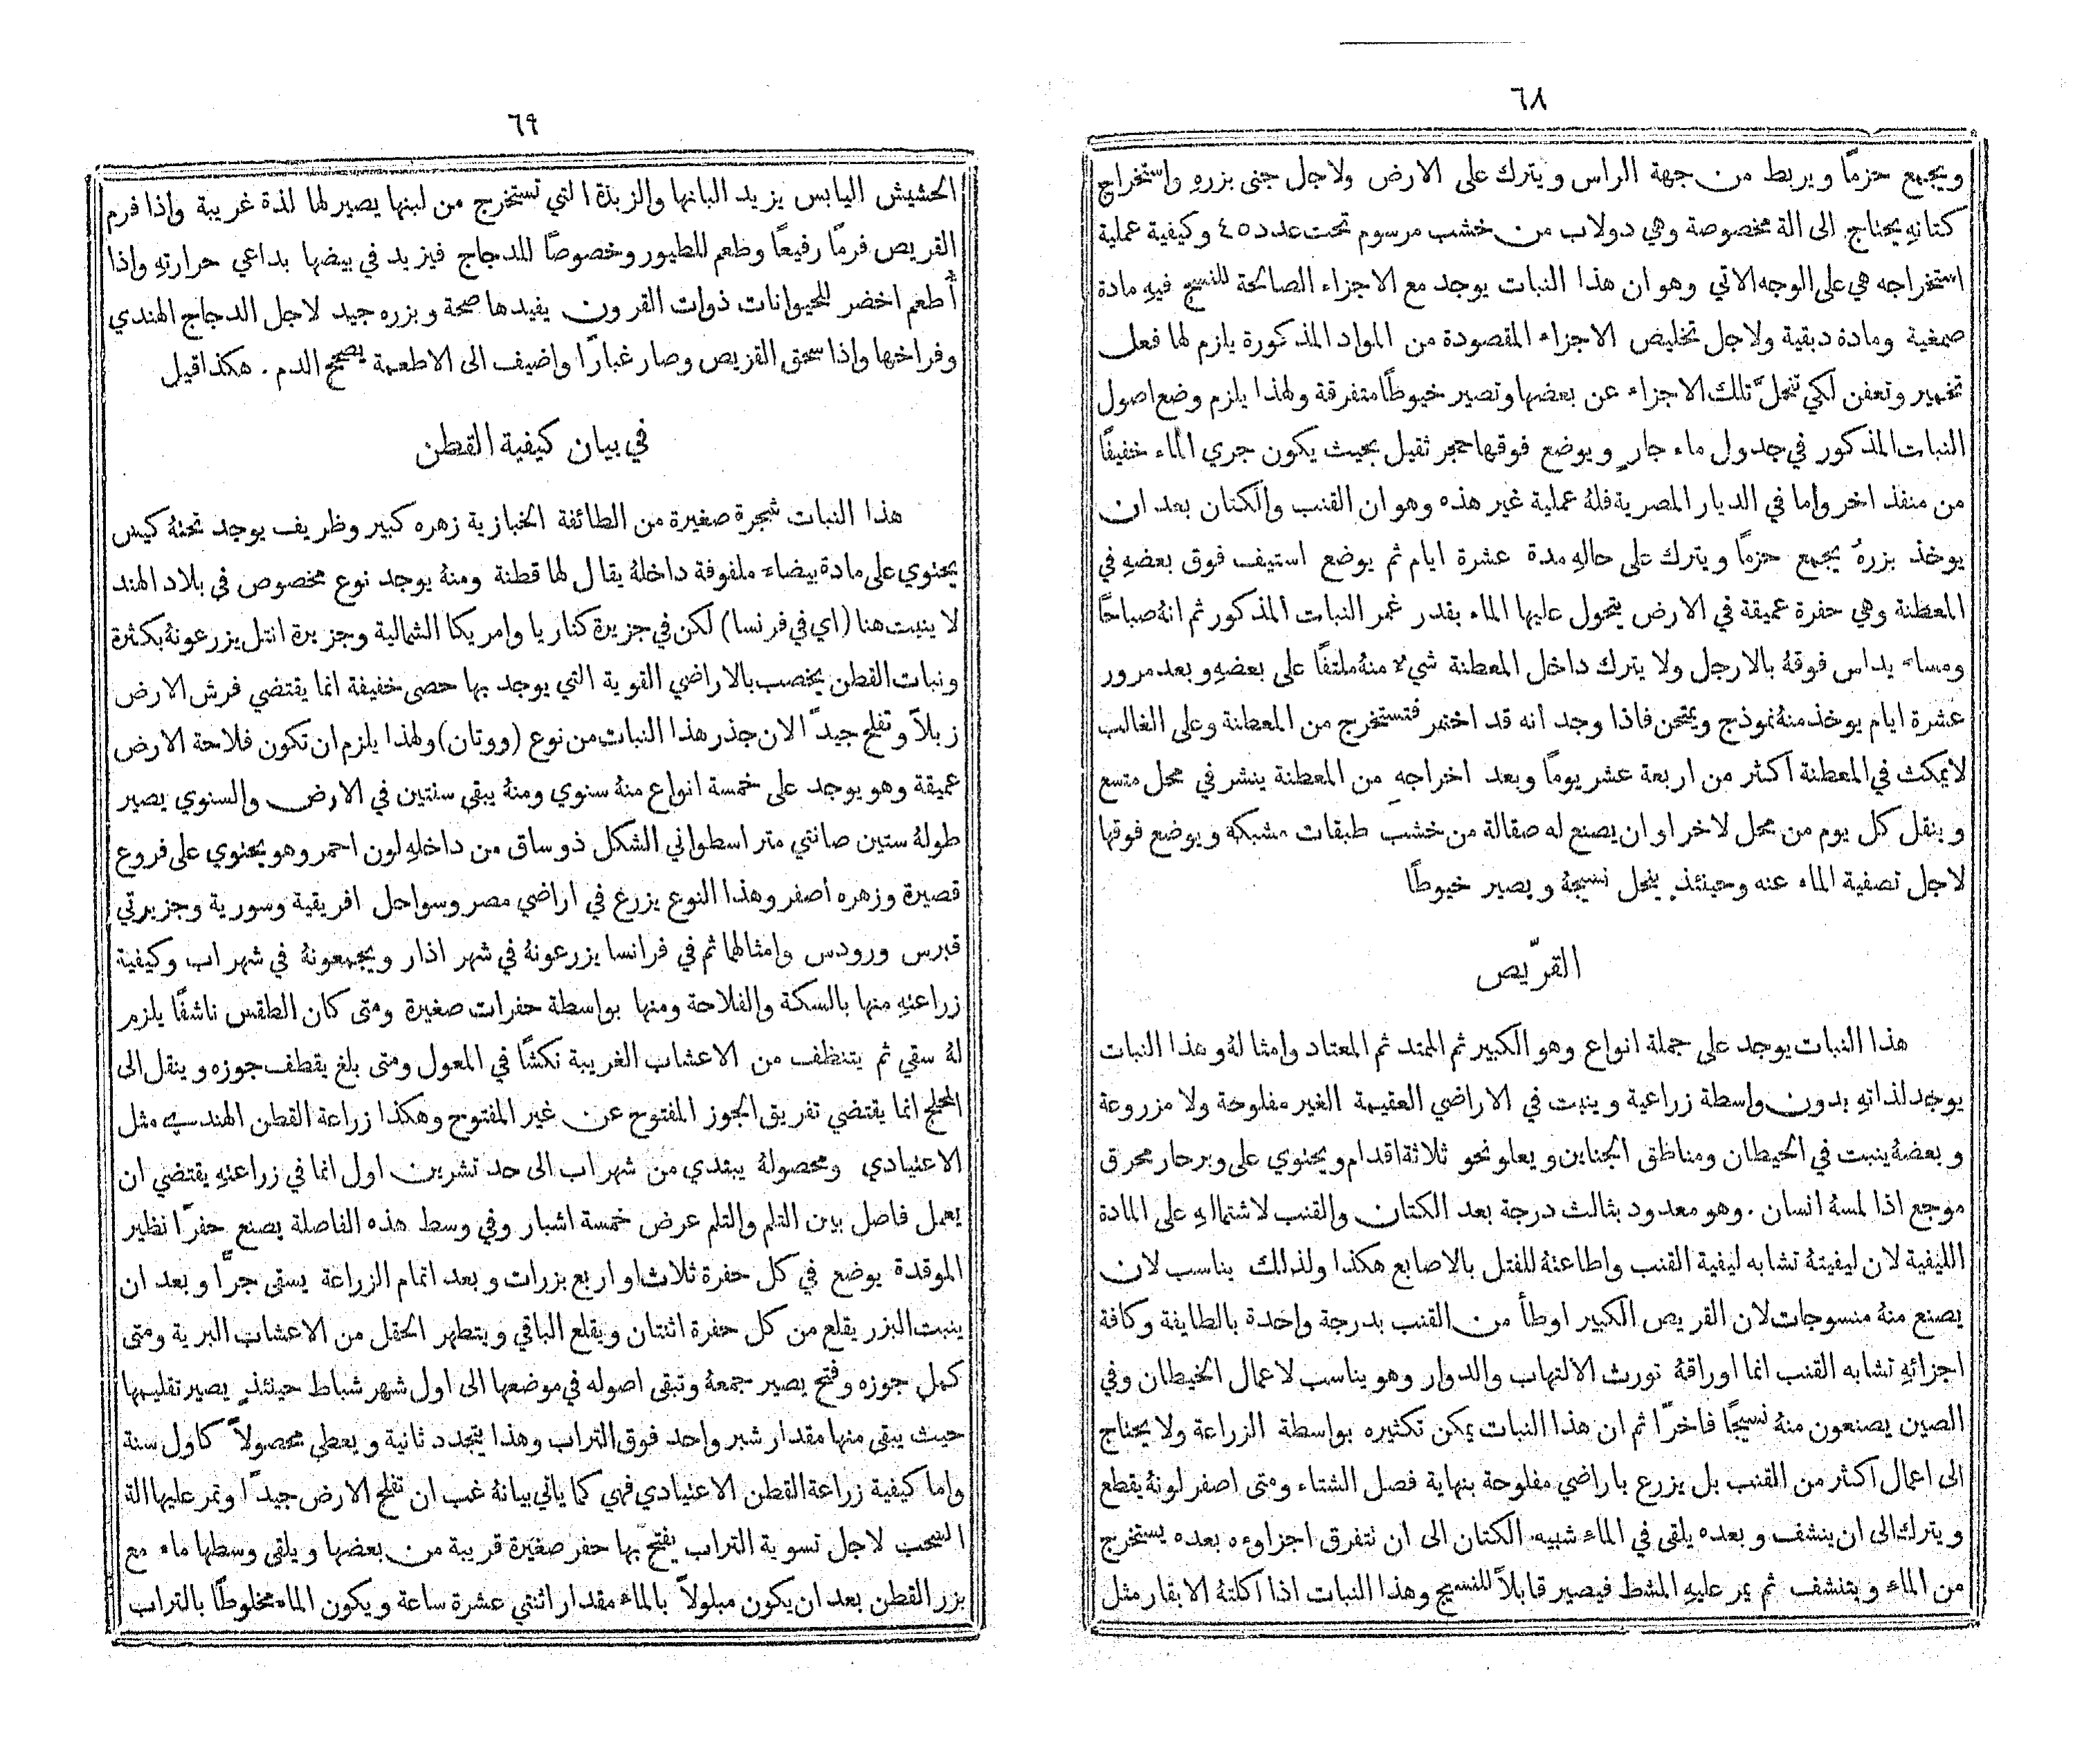 ٦٨
ويجمع حزمًا ويربط من جهة الراس ويترك على الارض ولاجل جنى بزرهِ واستخراج
كتانهِ يحتاج الى الة مخصوصة وهي دولاب من خشب مرسوم تحت عدد ٤٥ وكيفية عملية
استخراجه هي على الوجه الاتي وهو ان هذا النبات يوجد مع الاجزاء الصالحة للنسج فيهِ مادة
صمغية ومادة دبقية ولاجل تخليص الاجزاء المقصودة من المواد المذكورة يلزم لها فعل
تخمير وتعفن لكي تنحلّ تلك الاجزاء عن بعضها وتصير خيوطًا متفرقة ولهذا يلزم وضع اصول
النبات المذكور في جدول ماء جارٍ ويوضع فوقها حجر ثقيل بحيث يكون جري الماء خفيفًا
من منفذ اخر واما في الديار المصرية فلهُ عملية غير هذه وهو ان القنب والكتان بعد ان
يوخذ بزرهُ يجمع حزمًا ويترك على حالهِ مدة عشرة ايام ثم يوضع استيف فوق بعضهِ في
المعطنة وهي حفرة عميقة في الارض يتحول عليها الماء بقدر غمر النبات المذكور ثم انهُ صباحًا
ومساء يداس فوقهُ بالارجل ولا يترك داخل المعطنة شيء منهُ ملتفًا على بعضهِ وبعد مرور
عشرة ايام يوخذ منهُ نموذج ويمتحن فاذا وجد انه قد اختمر فتستخرج من المعطنة وعلى الغالب
لا يمكث في المعطنة اكثر من اربعة عشر يومًا وبعد اخراجهِ من المعطنة ينشر في محل متسع
وينقل كل يوم من محل لاخر او ان يصنع له صقالة من خشب طبقات مشبكة ويوضع فوقها
لاجل تصفية الماء عنه وحينئذٍ ينحل نسيجهُ ويصير خيوطًا
القرّيص
هذا النبات يوجد على جملة انواع وهو الكبير ثم الممتد ثم المعتاد وامثالهُ وهذا النبات
يوجد لذاتهِ بدون واسطة زراعية وينبت في الاراضي العقيمة الغير مفلوحة ولا مزروعة
وبعضهُ ينبت في الحيطان ومناطق الجناين ويعلو نحو ثلاثة اقدام ويحتوي على وبر حار محرق
موجع اذا لمسهُ انسان. وهو معدود بثالث درجة بعد الكتان والقنب لاشتمالهِ على المادة
الليفية لان ليفيتهُ تشابه ليفية القنب واطاعتهُ للفتل بالاصابع هكذا ولذلك يناسب لان
يصنع منهُ منسوجات لان القريص الكبير اوطأ من القنب بدرجة واحدة بالطايفة وكافة
اجزائهِ تشابه القنب انما اوراقهُ تورث الالتهاب والدوار وهو يناسب لاعمال الخيطان وفي
الصين يصنعون منهُ نسيجًا فاخرًا ثم ان هذا النبات يمكن تكثيره بواسطة الزراعة ولا يحتاج
الى اعمال اكثر من القنب بل يزرع باراضي مفلوحة بنهاية فصل الشتاء ومتى اصفر لونهُ يقطع
ويترك الى ان ينشف وبعده يلقى في الماء شبيه الكتان الى ان تتفرق اجزاوءه بعده يستخرج
من الماء ويتنشف ثم يمر عليهِ المشط فيصير قابلاً للنسيج وهذا النبات اذا اكلتهُ الابقار مثل
٦٩
الحشيش اليابس يزيد البانها والزبدة التي تستخرج من لبنها يصير لها لذة غريبة واذا فرم
القريص فرمًا رفيعًا وطعم للطيور وخصوصًا للدجاج فيزيد في بيضها بداعي حرارتهِ واذا
أُطعم اخضر للحيوانات ذوات القرون يفيدها صحة وبزره جيد لاجل الدجاج الهندي
وفراخها واذا سحق القريص وصار غبارًا واضيف الى الاطعمة يصحح الدم. هكذا قيل
في بيان كيفية القطن
هذا النبات شجرة صغيرة من الطائفة الخبازية زهره كبير وظريف يوجد تحتهُ كيس
يحتوي على مادة بيضاء ملفوفة داخلهُ يقال لها قطنة ومنهُ يوجد نوع مخصوص في بلاد الهند
لا ينبت هنا (اي في فرنسا) لكن في جزيرة كناريا وامريكا الشمالية وجزيرة انتل يزرعونهُ بكثرة
ونبات القطن يخصب بالاراضي القوية التي يوجد بها حصى خفيفة انما يقتضي فرش الارض
زبلاً وتفلح جيدًا لان جذر هذا النبات من نوع (ووتان) ولهذا يلزم ان تكون فلاحة الارض
عميقة وهو يوجد على خمسة انواع منهُ سنوي ومنهُ يبقى سنتين في الارض والسنوي يصير
طولهُ ستين صانتي متر اسطواني الشكل ذو ساق من داخلهِ لون احمر وهو يحتوي على فروع
قصيرة وزهره اصفر وهذا النوع يزرع في اراضي مصر وسواحل افريقية وسورية وجزيرتي
قبرس ورودس وامثالهما ثم في فرانسا يزرعونهُ في شهر اذار ويجمعونهُ في شهر اب وكيفية
زراعتهِ منها بالسكة والفلاحة ومنها بواسطة حفرات صغيرة ومتى كان الطقس ناشفًا يلزم
لهُ سقي ثم يتنظف من الاعشاب الغريبة نكشًا في المعول ومتى بلغ يقطف جوزه وينقل الى
المحلج انما يقتضي تفريق الجوز المفتوح عن غير المفتوح وهكذا زراعة القطن الهندي مثل
الاعتيادي ومحصولهُ يبتدي من شهر اب الى حد تشرين اول انما في زراعتهِ يقتضي ان
يعمل فاصل بين التلم والتلم عرض خمسة اشبار وفي وسط هذه الفاصلة يصنع حفرًا نظير
الموقدة يوضع في كل حفرة ثلاث او اربع بزرات وبعد اتمام الزراعة يسقى جرًّا وبعد ان
ينبت البزر يقلع من كل حفرة اثنتان ويقلع الباقي ويتطهر الحقل من الاعشاب البرية ومتى
كمل جوزه وفتح يصير جمعهُ وتبقى اصوله في موضعها الى اول شهر شباط حينئذٍ يصير تقليمها
حيث يبقى منها مقدار شبر واحد فوق التراب وهذا يتجدد ثانية ويعطي محصولاً كاول سنة
واما كيفية زراعة القطن الاعتيادي فهي كما ياتي بيانهُ غب ان تفلح الارض جيدًا وتمر عليها الة
السحب لاجل تسوية التراب يفتح بها حفر صغيرة قريبة من بعضها ويلقى وسطها ماء مع
بزر القطن بعد ان يكون مبلولاً بالماء مقدار اثنتي عشرة ساعة ويكون الماء مخلوطًا بالتراب